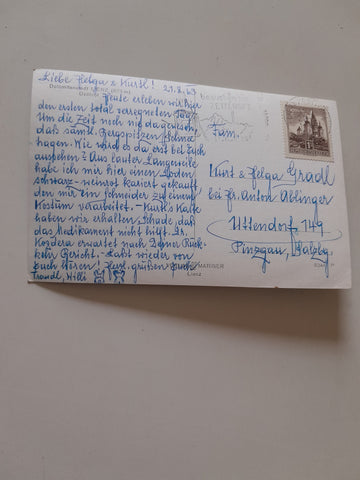 Liebe Helga & Kurtl! 21.8.69
Dolomitenstadt LIENZ
Heute erleben wir hier
den ersten total verregneten Tag.
Um die Zeit noch nie dagewesen,
daß sämtl. Bergspitzen Schnee
haben. Wie wird es da erst bei Euch
aussehen? Aus lauter Langeweile
habe ich mir hier einen Loden
schwarz-weinrot kariert gekauft,
den mir ein Schneider zu einem
Kostüm verarbeitet. - Kurtl's Karte
haben wir erhalten. Schade, daß
das Medikament nicht hilft. Dr.
erwartet nach Deiner Rück-
kehr Bericht. - Laßt wieder von
Euch hören! Herzl. grüßen Euch
Traudl, Willi
Fam.
Kurt & Helga Gradl
bei Fr. Anton Ablinger
Uttendorf 149
Pinzgau, Salzbg.
Lienz